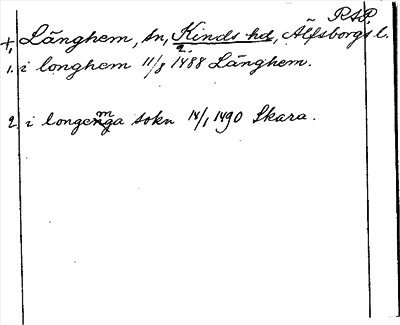 P.S.P.
+, Länghem, sn, Kinds hd, Älfsborgs l.
2.
1. i longhem 11/8 1488 Länghem.
2. i longenga sokn 14/1 1490 Skara.
m